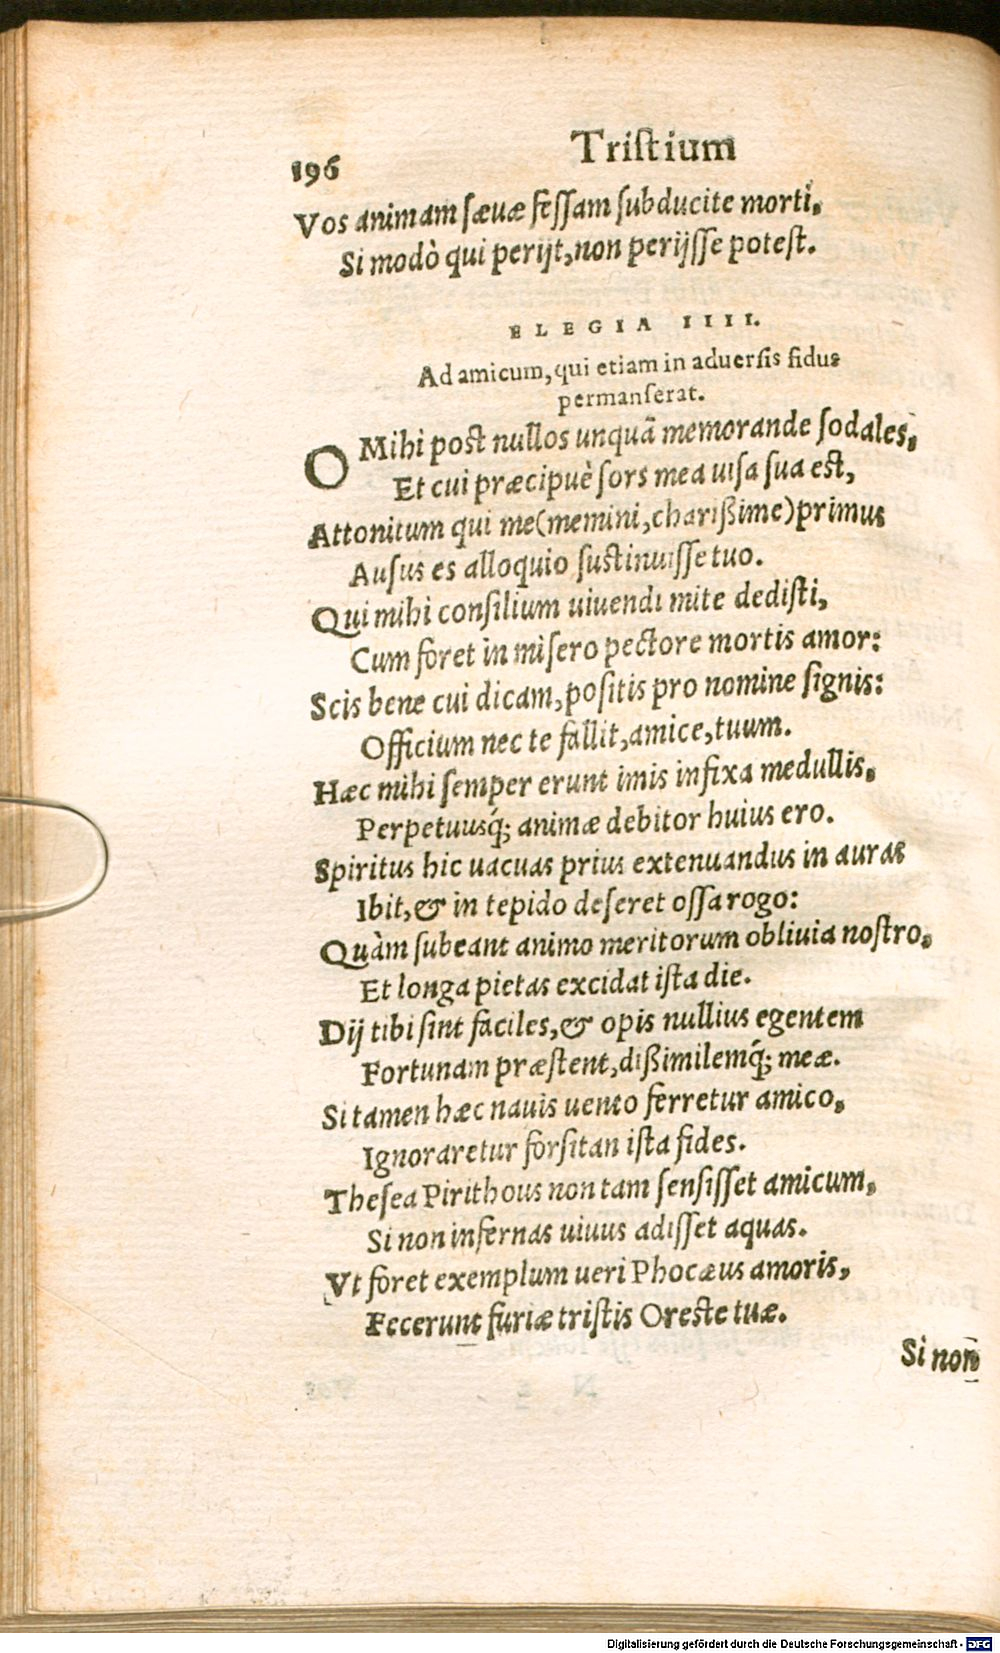 196
Tristium
Vos animam sæuæ fessam subducite morti,
Si modò qui perijt, non perijsse potest.
ELEGIA IIII.
Ad amicum, qui etiam in aduersis fidus
permanserat.
O Mihi post nullos unquã memorande sodales,
Et cui præcipuè sors mea uisa sua est,
Attonitum qui me (memini, charißime) primus
Ausus es alloquio sustinuisse tuo.
Qui mihi consilium uiuendi mite dedisti,
Cum foret in misero pectore mortis amor:
Scis bene cui dicam, positis pro nomine signis:
Officium nec te fallit, amice, tuum.
Hæc mihi semper erunt imis infixa medullis,
Perpetuusq́; animæ debitor huius ero.
Spiritus hic uacuas prius extenuandus in auras
Ibit, & in tepido deseret ossa rogo:
Quàm subeant animo meritorum obliuia nostro,
Et longa pietas excidat ista die.
Dij tibi sint faciles, & opis nullius egentem
Fortunam præstent, dißimilemq́; meæ.
Si tamen hæc nauis uento ferretur amico,
Ignoraretur forsitan ista fides.
Thesea Pirithous non tam sensisset amicum,
Si non infernas uiuus adisset aquas.
Vt foret exemplum ueri Phocæus amoris,
Fecerunt furiæ tristis Oreste tuæ.
Si non
Digitalisierung gefördert durch die Deutsche Forschungsgemeinschaft - DFG